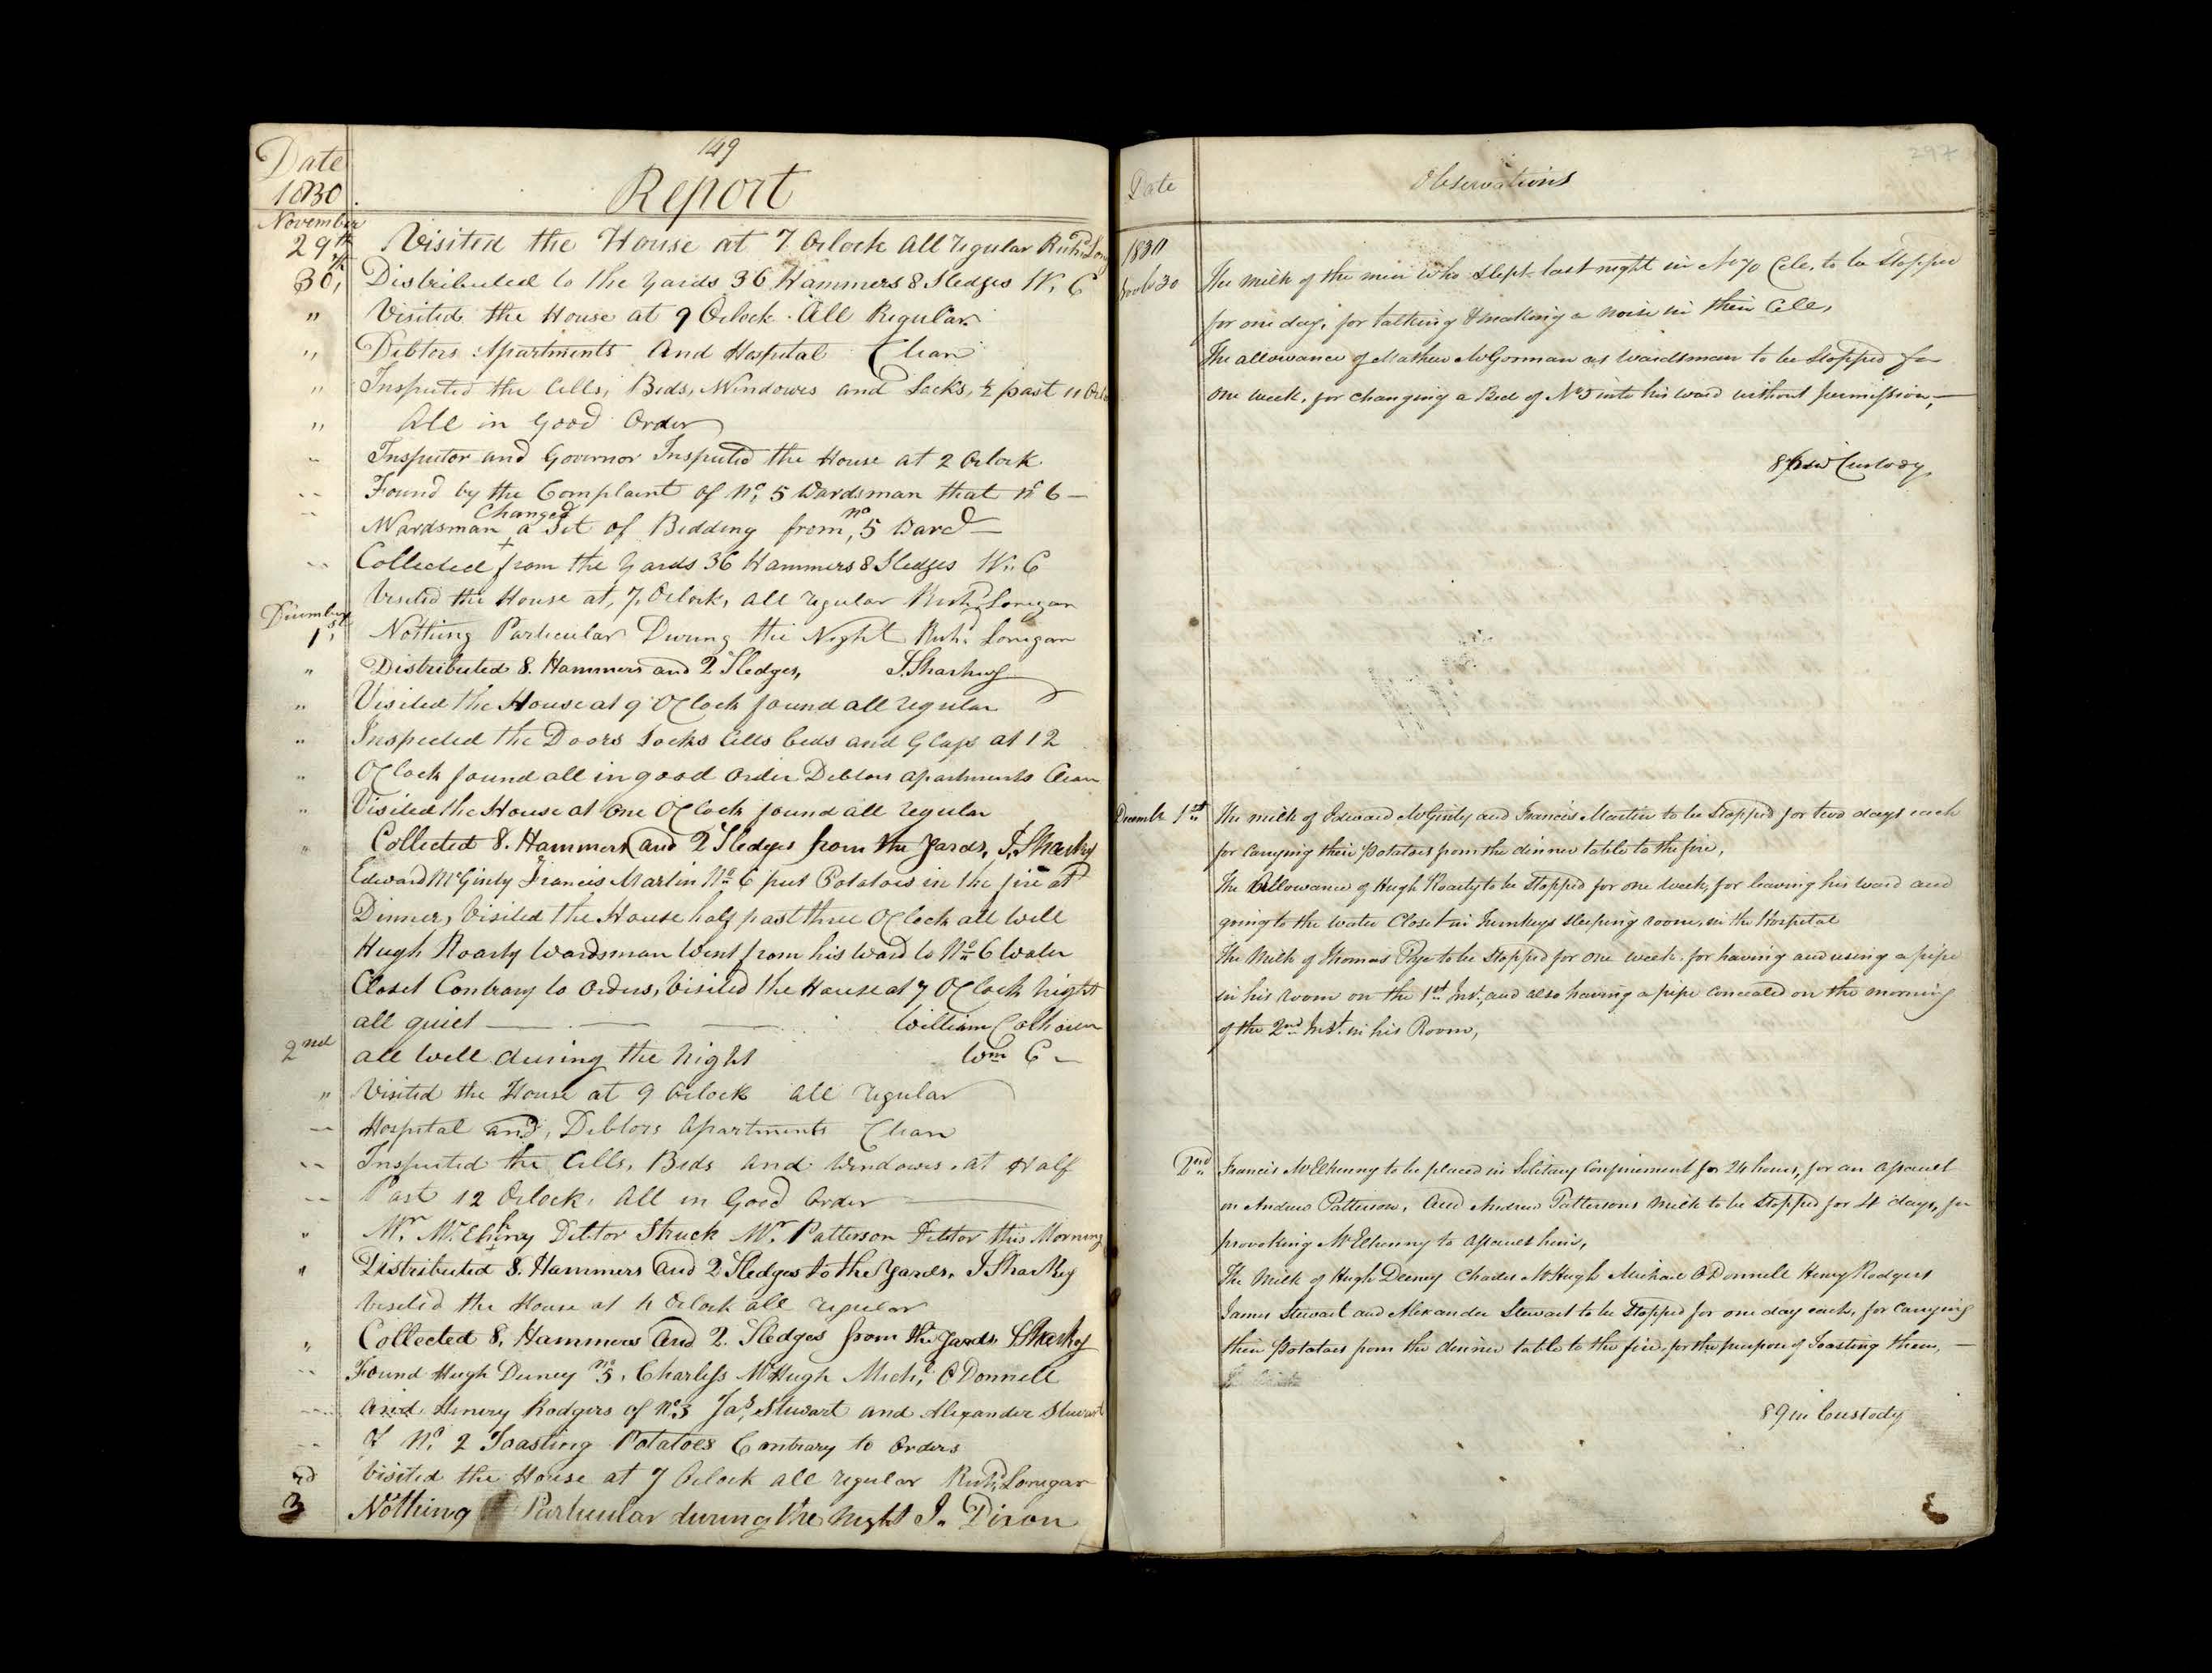 149
Date
1830
Report
November
29th Visited the House at 7 Oclock All regular Richd. Lon
30th Distributed to the yards 36 Hammers 8 Sledges W. C
" Visited the House at 9 Oclock. All Regular
" Debtors Apartments And Hospital Clean
" Inspected the Cells, Beds, Windows and Locks, ½ past 11 Oclo
" All in Good Order
" Inspector and Governor Inspected the House at 2 Oclock
" Found by the Complaint of No. 5 Wardsman that No 6 —
" Changed no
Wardsman a Set of Bedding from, 5 Ward —
" Collected from the yards 36 Hammers 8 Sledges W. C
Visited the House at, 7, Oclock, all regular Richd. Lonigan
December
1st, Nothing Particular During the Night Richd. Lonigan
" Distributed 8. Hammers and 2 Sledges, J. Sharkey
" Visited the House at 9 OClock found all regular
" Inspected the Doors Locks Cells beds and Glass at 12
" OClock found all in good order Debtors apartments Clean
" Visited the House at One OClock found all regular
" Collected 8. Hammers and 2 Sledges from the yards, J. Sharkey
Edward McGinly Francis Martin No. 6 put Potatoes in the fire at
Dinner, Visited the House half past three OClock all well
Hugh Roarty Wardsman Went from his Ward to No. 6 Water
Closet Contrary to Orders, Visited the House at 7 OClock night
all quiet — — — William Colhoun
2nd all well during the night Wm C —
" Visited the House at 9 Oclock All regular
— Hospital and, Debtors Apartments Clean
-- Inspected the Cells, Beds and Windows, at Half
-- Past 12 Oclock, All in Good Order —
" Mr. McElheny Debtor Struck Mr. Patterson Debtor this Morning
" Distributed 8. Hammers and 2 Sledges to the Yards, J Sharkey
Visited the House at 4 Oclock all regular
" Collected 8, Hammers and 2. Sledges from the yards J Sharkey
-- Found Hugh Deeney no 5, Charless McHugh Michl. ODonnell
-- and Henery Rodgers of No. 3 Jas. Stewart and Alexander Stewart
-- of No. 2 Toasting Potatoes Contrary to Orders
Visited the House at 7 Oclock all regular Richd. Lonigan
3rd Nothing Particular during the night J. Dixon
297
Date
Observations
1830
Novbr 30 The milk of the men who slept last night in No Cele, to be Stopped
for one day, for talking & making a noise in their Cele,
The allowance of Mathew McGorman as Wardsman to be Stopped for
one week, for changing a Bed of No 5 into his ward without permission, —
in Custody
December 1st The milk of Edward McGinly and Francis Martin to be Stopped for two days each
for Carrying their Potatoes from the dinner table to the fire,
The Allowance of Hugh Roarty to be Stopped for one week, for leaving his ward and
going to the water Closet in Turnkeys Sleeping room, in the Hospital
The Milk of Thomas Pye to be Stopped for one week, for having and using a pipe
in his room on the 1st Inst. and also having a pipe Concealed on the morning
of the 2nd Inst. in his Room,
2nd Francis McElhenny to be placed in Solitary Confinement for 24 hours, for an assault
on Andrew Patterson, And Andrew Pattersons milk to be Stopped for 4 days, for
provoking McElhenny to assault him,
The Milk of Hugh Deeney Charles McHugh Michael ODonnell Henry Rodgers
James Stewart and Alexander Stewart to be Stopped for one day each, for Carrying
their Potatoes from the dinner table to the fire, for the purpose of Toasting them, —
89 in Custody